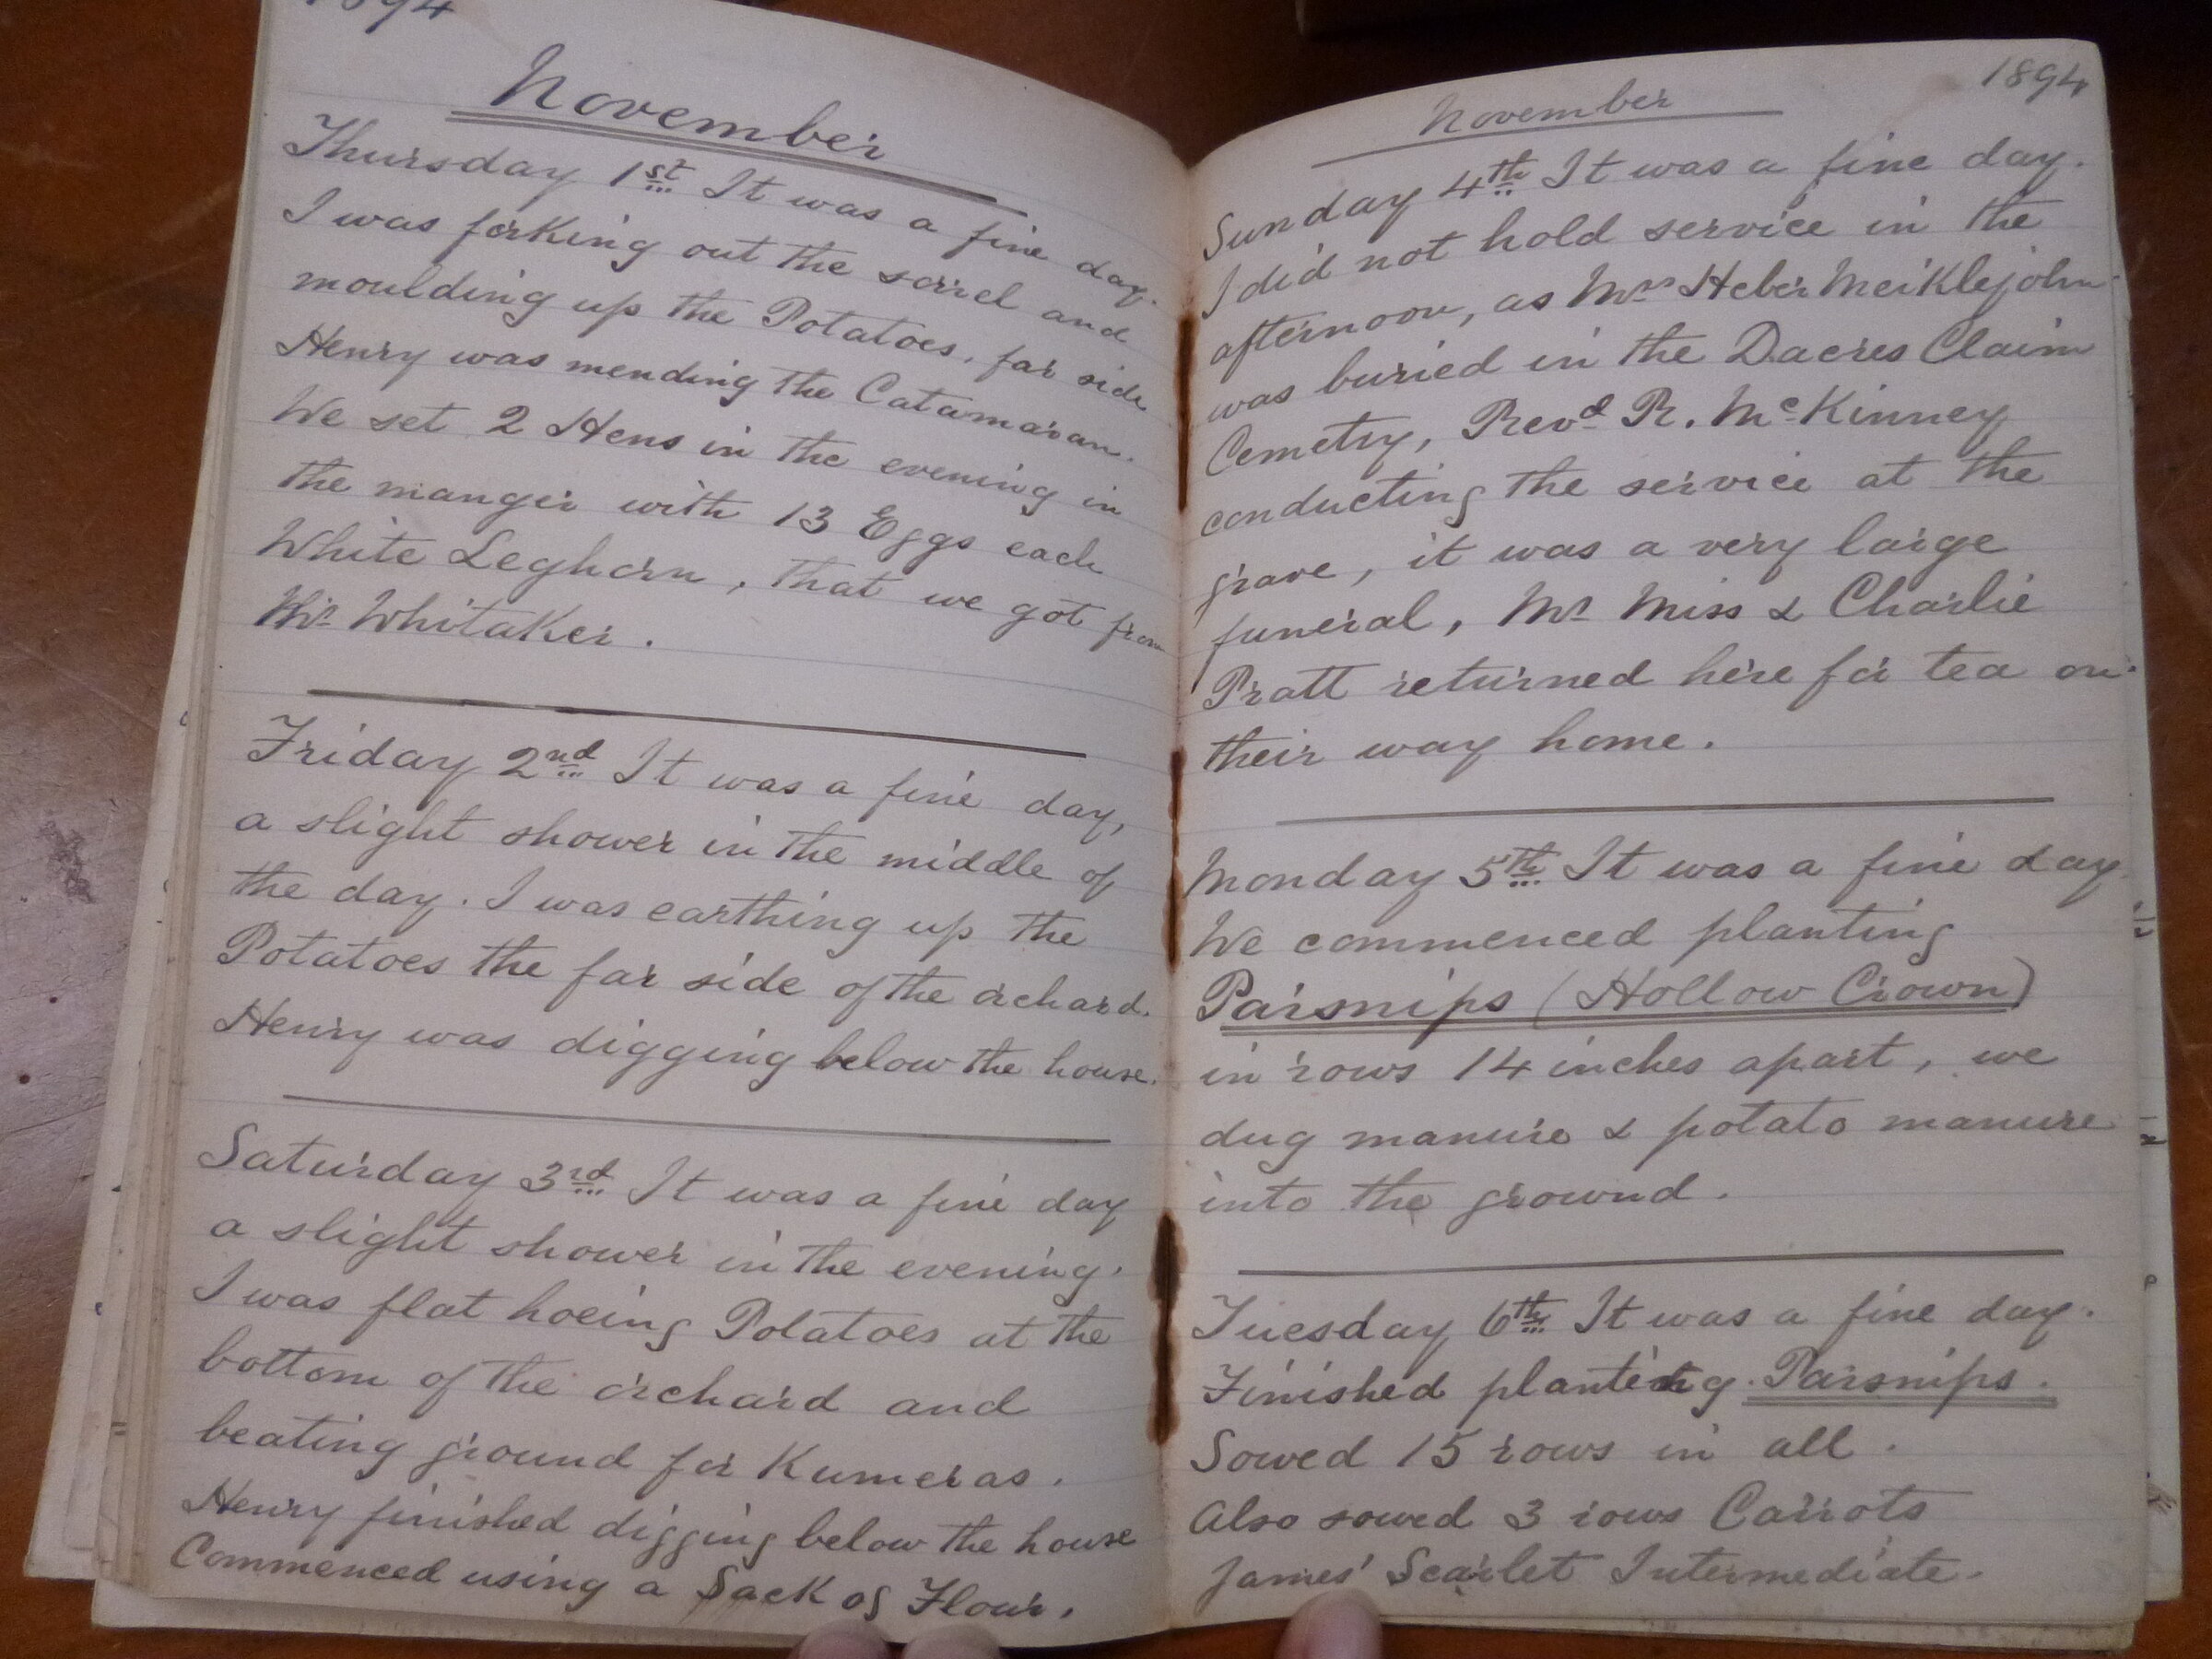 1894
November
Thursday 1st It was a fine day.
I was forking out the sorrel and
moulding up the Potatoes, far side
Henry was mending the Catamaran.
We set 2 Hens in the evening in
the manger with 13 Eggs each
White Leghorn, that we got from
Mr Whitaker.
Friday 2nd It was a fine day,
a slight shower in the middle of
the day. I was earthing up the
Potatoes the far side of the orchard.
Henry was digging below the house.
Saturday 3rd It was a fine day
a slight shower in the evening.
I was flat hoeing Potatoes at the
bottom of the orchard and
beating ground for Kumeras.
Henry finished digging below the house
Commenced using a Sack of Flour.
November 1894
Sunday 4th It was a fine day.
I did not hold service in the
afternoon, as Mrs Heber Meiklejohn
was buried in the Dacres Claim
Cemetry, Revd R. McKinney
conducting the service at the
grave, it was a very large
funeral, Mr Miss & Charlie
Pratt returned here for tea on
their way home.
Monday 5th It was a fine day
We commenced planting
Parsnips (Hollow Crown)
in rows 14 inches apart, we
dug manure & potato manure
into the ground.
Tuesday 6th It was a fine day.
Finished planting Parsnips.
Sowed 15 rows in all.
Also sowed 3 rows Carrots
James' Scarlet Intermediate.